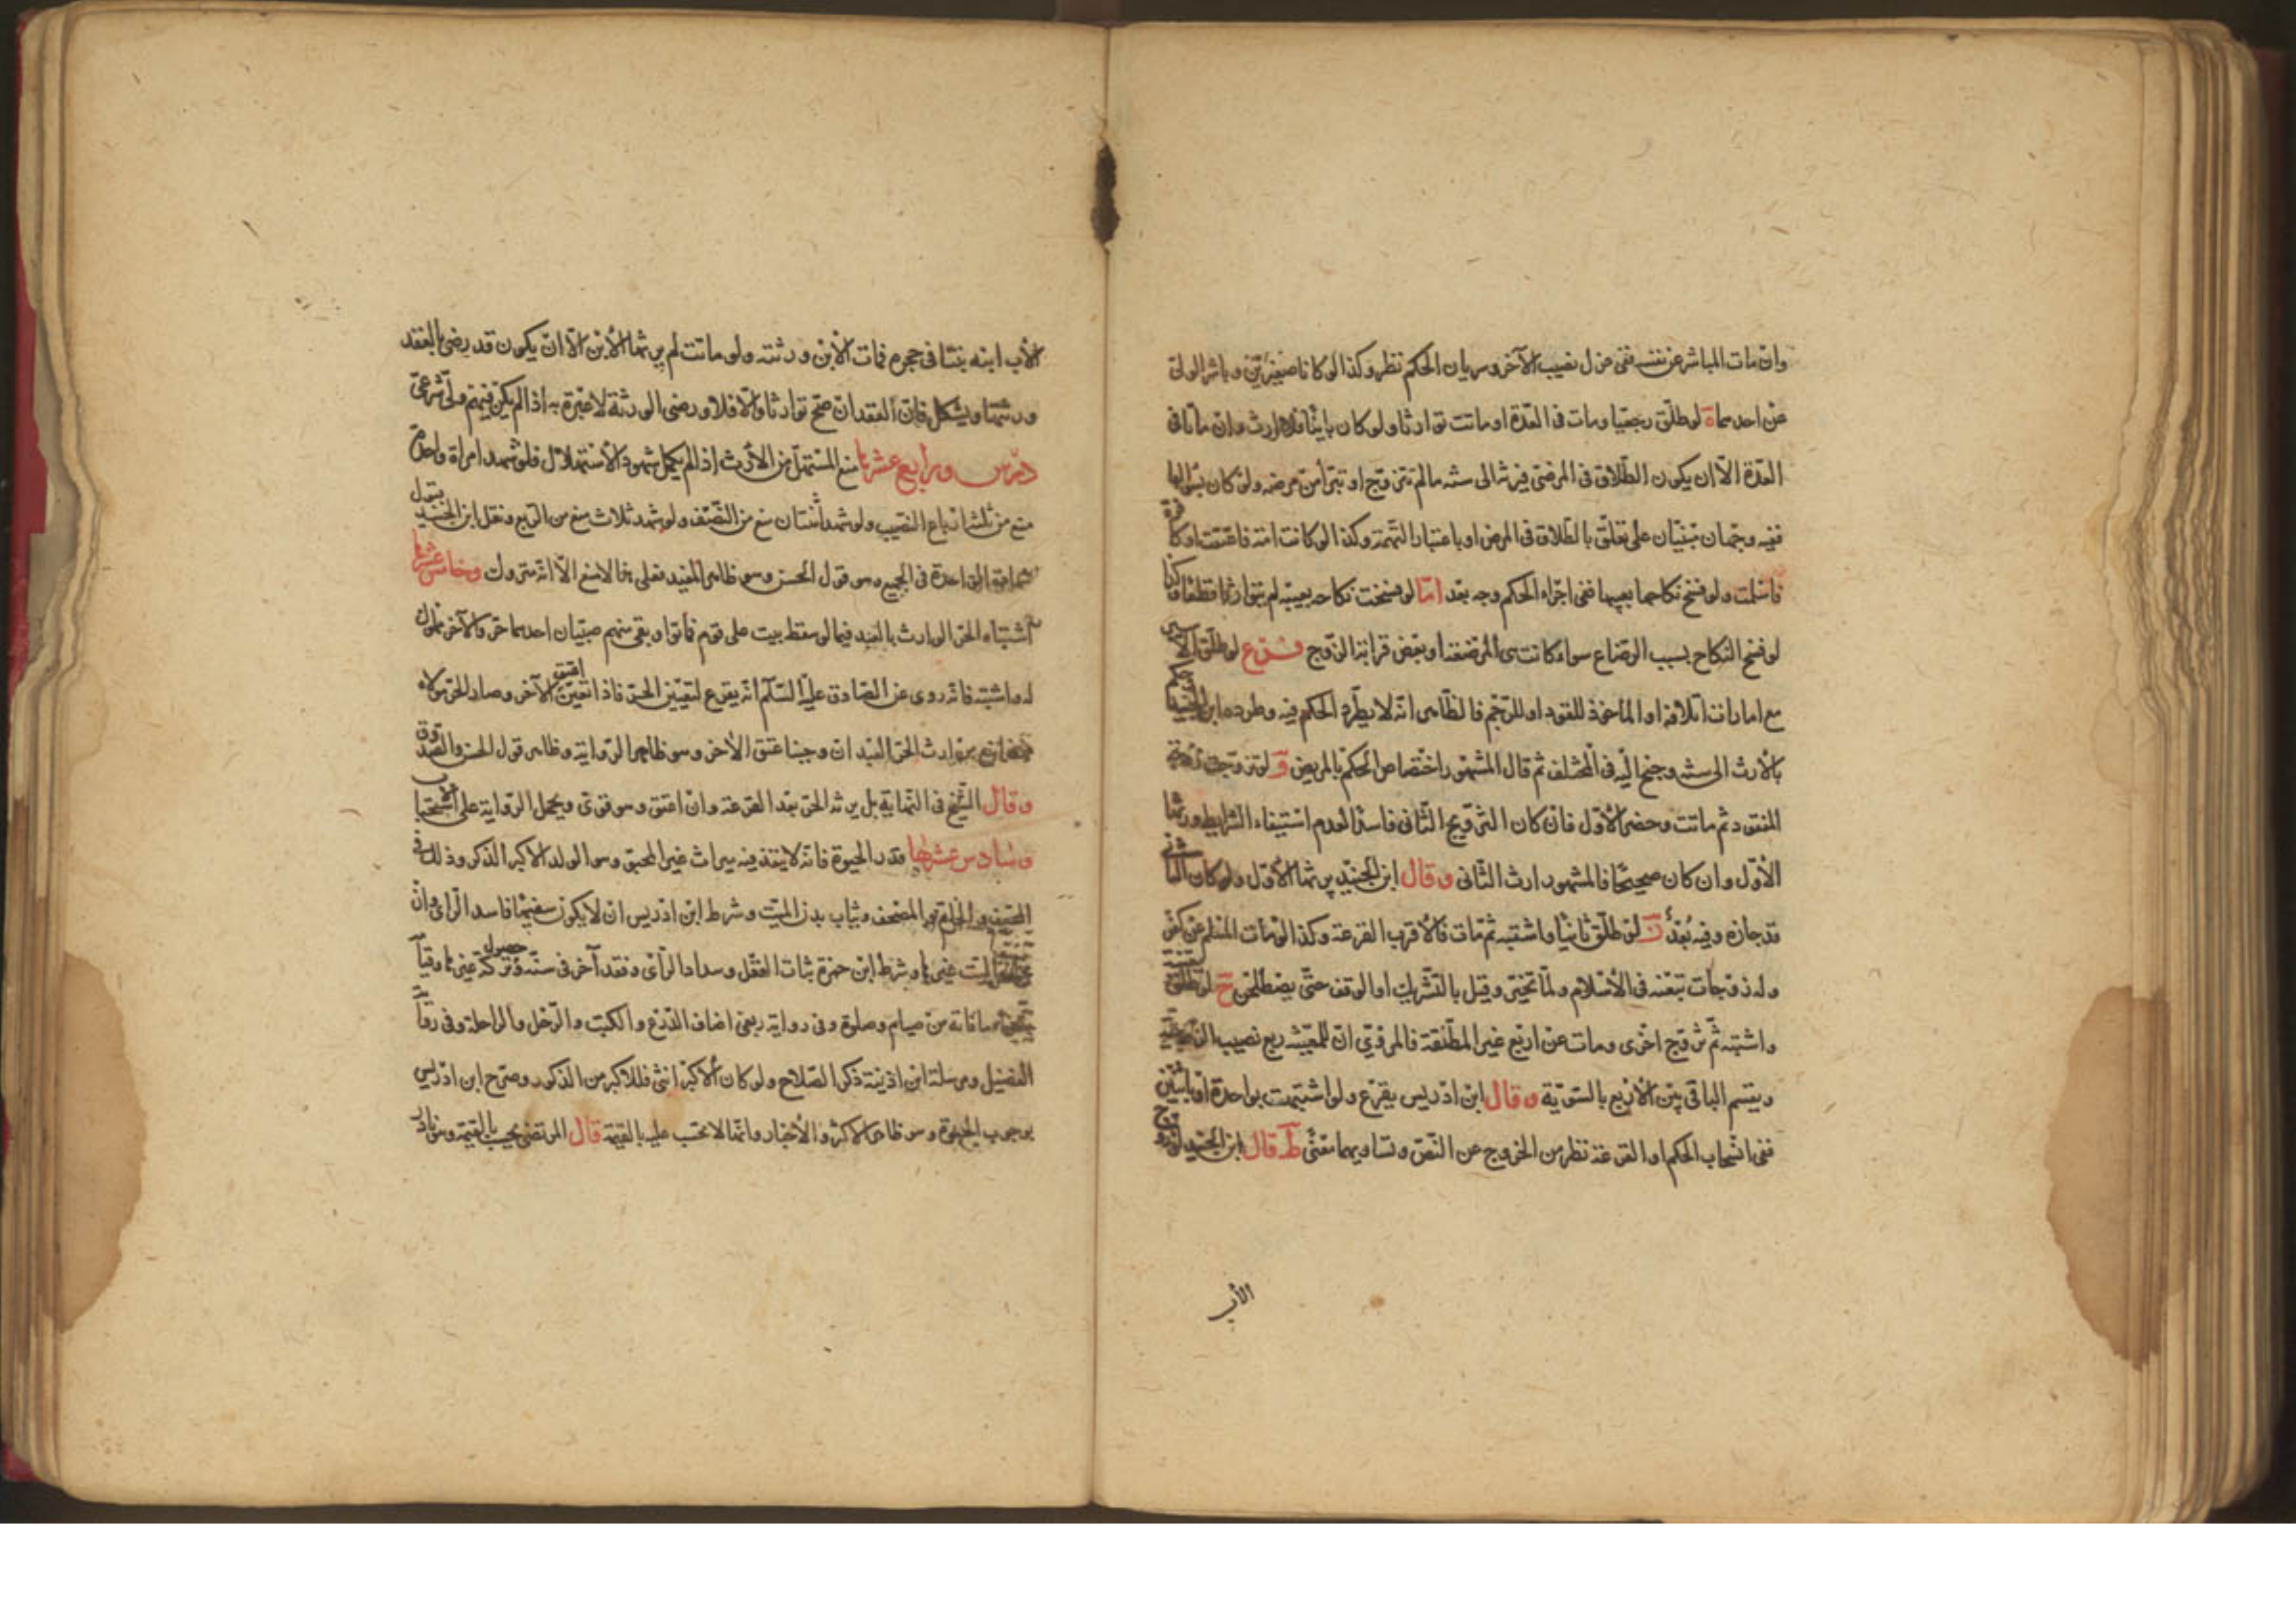 وان مات المباشر عن نفسه ففى عزل نصيب الآخر وسريان الحكم نظر وكذا لو كانا صغيرين وباشر الولى
عن احدهما ة لو طلّق رجعيا ومات فى العدّة او ماتت توارثا ولو كان باينًا فلا ارث وان ماتا فى
العدّة الّا ان يكون الطّلاق فى المرض فيرثه الى سنة ما لم تتزوّج او تبرأ من مرضه ولو كان بسؤالها
ففيه وجهان مبنيّان على تعلّق بالطّلاق فى المرض او باعتبار التّهمة وكذا لو كانت امة فاعتقت او كافرة
فاسلمت ولو فسخ نكاحها بعيبها ففى اجراء الحكم وجه بعد امّا لو فسخت نكاحه بعيبه لم يتوارثا قطعًا وكذا
لو فسخ النكاح بسبب الرضاع سواء كانت هى المرضعة او بعض قرابة الزوج فرع لو طلّق الاسير
مع امارات اتلافه او الماخوذ للقود او للرّجم فالظّاهر انّه لا يطّرد الحكم فيه وطرده ابن الجنيد فحكم
بالارث الى سنة وجنح اليه فى المختلف ثم قال المشهور اختصاص الحكم بالمريض و لو تزوّجت زوجة
المفقود ثم ماتت وحضر الاوّل فان كان التزويج الثّانى فاسدًا لعدم استيفاء الشرايط ورثها
الاوّل وان كان صحيحًا فالمشهور ارث الثّانى وقال ابن الجنيد يرثها الاوّل ولو كان الثانى
قد جازه وفيه بُعد ز لو طلّق ثانيا واشتبه ثم مات فالاقرب القرعة وكذا لو مات المسلم عن كفر
وله زوجات تبعنه فى الاسلام ولمّا تخيّر وقيل بالتّشريك او الوقف حتّى يصطلحن ح لو طلّق
واشتبه ثمّ تزوّج اخرى ومات عن اربع غير المطلّقة فالمروىّ انّ للمعيّنة ربع نصيب الزوجية
ويقسم الباقى بين الاربع بالسّويّة وقال ابن ادريس يقرع ولو اشتبهت بواحدة او باثنين
ففى انسحاب الحكم او القرعة نظر من الخروج عن النّصّ وتساويهما معنًى ط قال ابن الجنيد لو زوج
الأب
الأب ابنه بنتا فى حجره فمات الابن ورثته ولو ماتت لم يرثها الابن الّا ان يكون قد رضى بالعقد
ورثها ويشكل فانّ العقد ان صحّ توارثا والّا فلا ورضى الورثة لا عبرة به اذا لم يكن فيهم ولّى شرعىّ
درس ورابع عشرها منع المستهلّ من الارث اذا لم يكمل شهود الاستهلال فلو شهد امراة واحدة
منع من ثلثة ارباع النّصيب ولو شهد اثنتان منع من النّصف ولو شهد ثلاث منع من الرّبع ونقل ابن الجنيد قبول
شهادة الواحدة فى الجميع وهو قول الحسن وهو ظاهر المفيد فعلى هذا لا منع الّا انّه متروك وخامس عشرها
اشتباه الحرّ الوارث بالعبد فيما لو سقط بيت على قوم فماتوا وبقى منهم صبيّان احدهما حرّ والآخر مملوك
له واشتبه فانه روى عن الصّادق عليه السّلم انّه يقرع لتعيين الحرّ فاذا تعيّن اعتق الآخر وصار الحرّ مولاه
من ارث الحرّ العبد ان وجبنا عتق الآخر وهو ظاهر الرّواية وظاهر قول الحسن والصّدوق
وقال الشّيخ فى النّهاية بل يرثه الحرّ بعد القرعة وان اعتق وهو قوىّ ويحمل الرّواية على الاستحباب
وسادس عشرها قدر الحبوة فانّه لا ينفذ فيه ميراث غير المحبوّ وهو الولد الاكبر الذكر وذلك فى
السّيف والخاتم والمصحف وثياب بدن الميّت وشرط ابن ادريس ان لا يكون سفيها فاسد الرّاى وان
الميت غيرها وشرط ابن حمزة ثبات العقل وسداد الرّاى وفقد آخر فى سنّه وحصول تركة غيرها وقيا
ما فاته من صيام وصلوة وفى رواية ربعى اضاف الدّرع والكتب والرّحل والراحلة وفى روا
الفضيل ومرسلة ابن اذينة ذكر السّلاح ولو كان الاكبر انثى فللاكبر من الذكور وصرّح ابن ادريس
بوجوب الحبوة وهو ظاهر الاكثر والاخبار وانّها لا تحتسب عليه بالقيمة قال المرتضى يحتسب بالقيمة وهو نادر